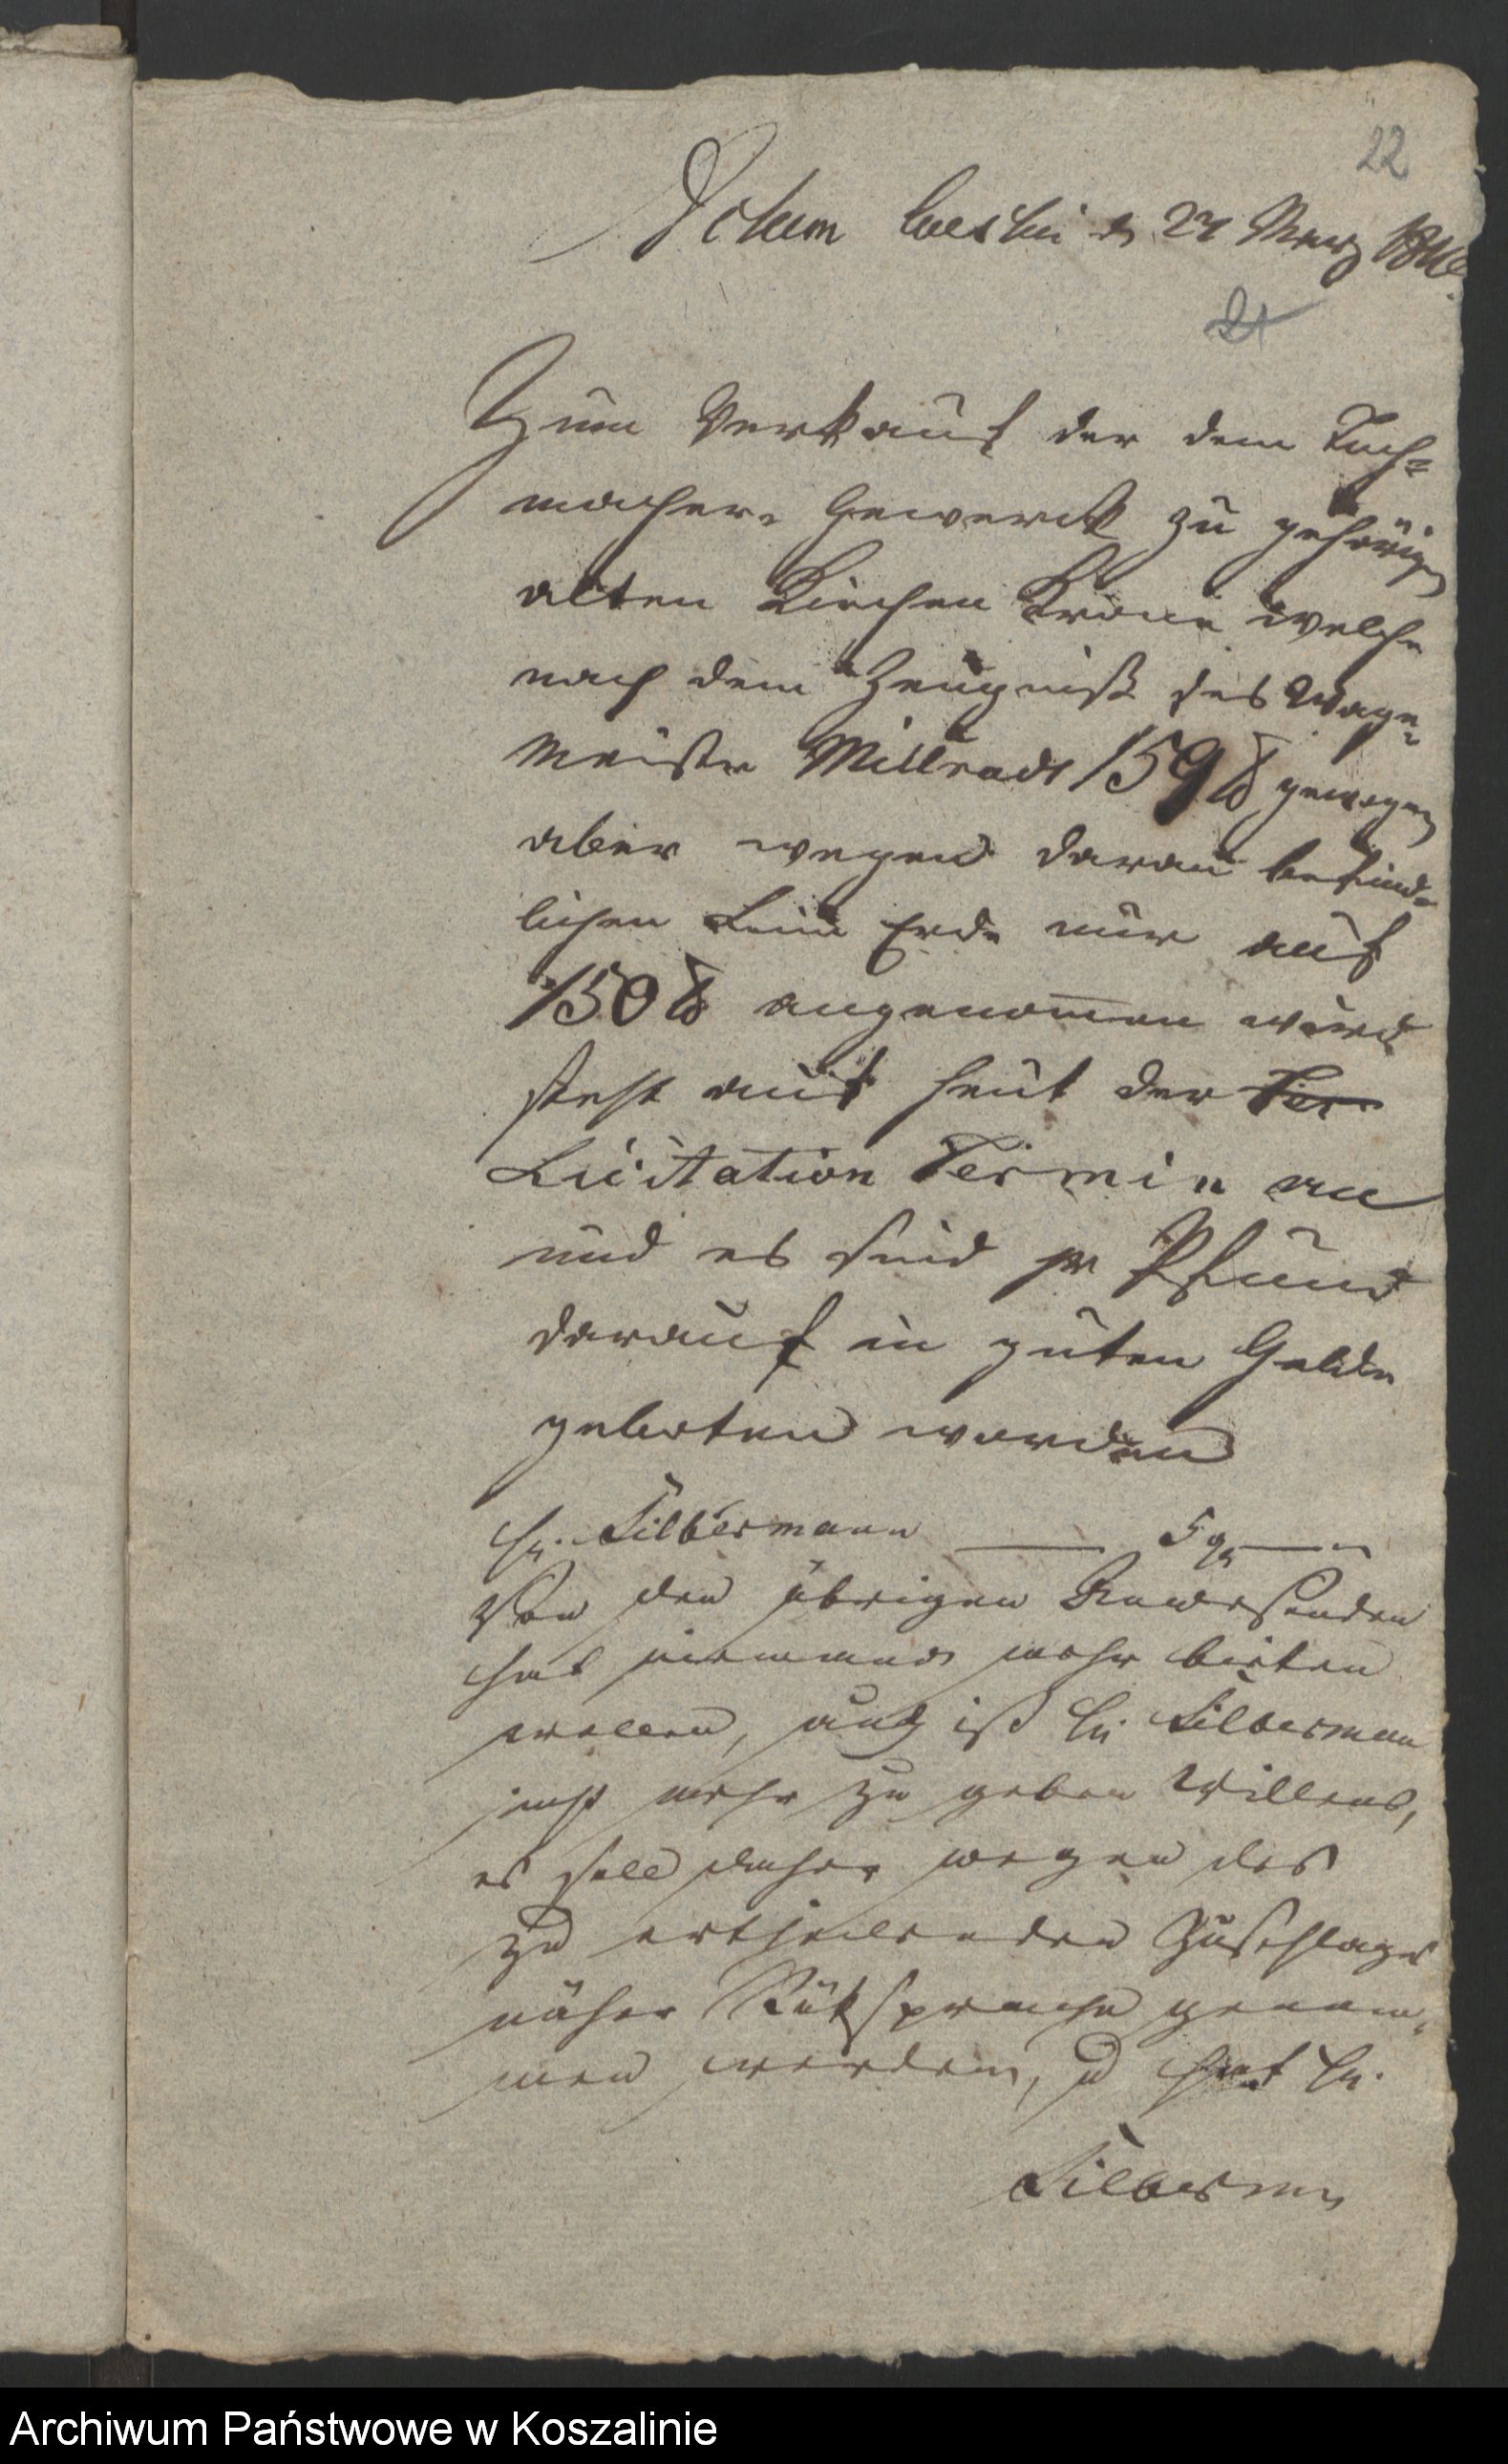 22
Actum Coeslin d 27 Merz 1816.
21
Zum Verkauf der dem Tuch=
macher Gewerck zu gehörigen
alten Kirchen Krone welche
nach dem Zeugniß des Wage
Meister Millradt 159 ℔ gewogen
aber wegen daran befind-
lichen Leim Erde nur auf
150 ℔ angenommen wird
steht auf heut der Ter
Licitation Termin an
und es sind pr Pfund
darauf in guten Gelde
geboten worden
Hr. Silbermann — 5 gr —
Von den übrigen Anwesenden
hat niemand mehr bieten
wollen, auch ist Hr Silberman
nicht mehr zu geben Willens,
es soll daher wegen des
zu ertheilenden Zuschlages
näher Rüksprache genom-
men werden, u hat Hr.
Silberman
Archiwum Państwowe w Koszalinie